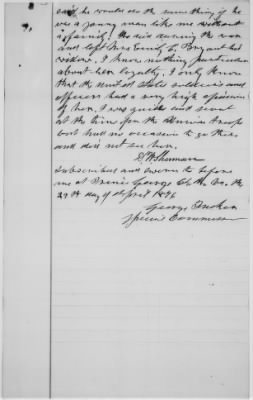 said he would do the same thing if he
was a young man like me without
a family. He died during the war
and left Mrs Emily L. Bryant his
widow. I know nothing particular
about her loyalty. I only know
that the United States soldiers and
officers had a very high opinion
of her. I was guide and scout
at the time for the Union troops
but had no occasion to go there
and did not see her.
Sherman
Subscribed and sworn to before
me at Prince George C.H. Va. the
29th day of April 1876
George
Special Commissioner